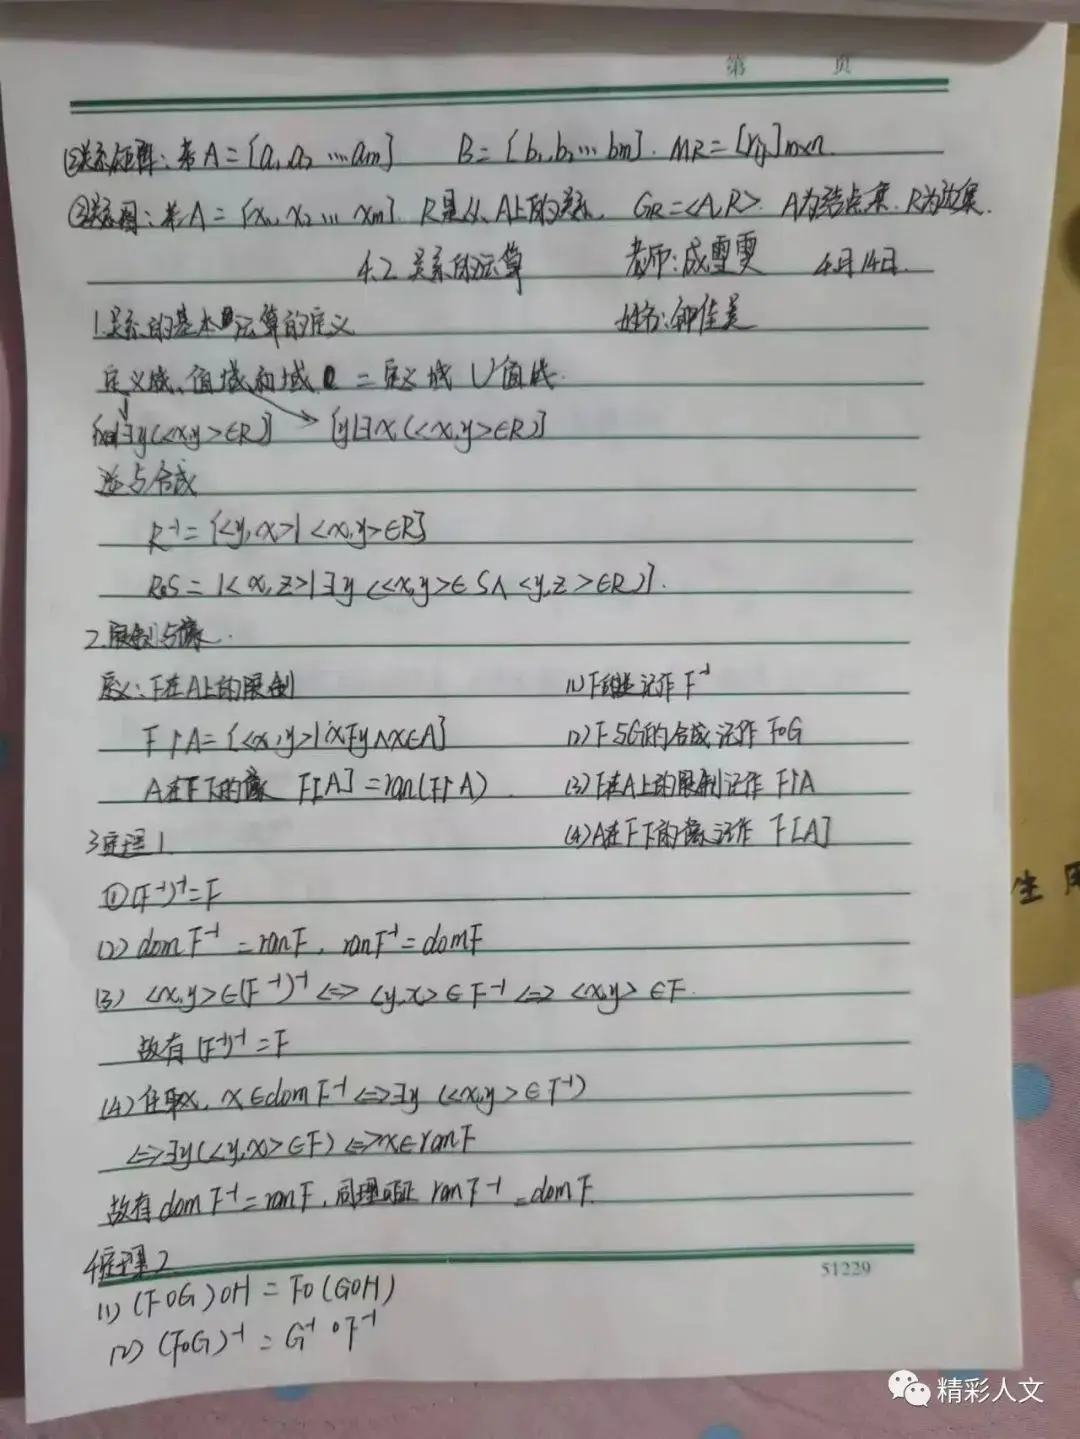 第 页
②关系矩阵：若A={a₁,a₂…am} B={b₁,b₂…bm}. MR=[rij]m×n.
③关系图：若A={x₁,x₂…xm}. R是从A上的关系. GR=<A,R>. A为结点集. R为边集.
4.2 关系的运算 老师:成雪雯 4月14日.
1.关系的基本运算的定义 姓名:钟佳
定义域、值域和域 = 定义域 ∪ 值域.
{x|∃y(<x,y>∈R)} {y|∃x(<x,y>∈R)}
逆与合成
R⁻¹={<y,x>|<x,y>∈R}
R∘S={<x,z>|∃y(<x,y>∈S∧<y,z>∈R)}.
2.限制与像.
定义:F在A上的限制 (1)F的逆记作F⁻¹
F↾A={<x,y>|xFy∧x∈A} (2)F与G的合成记作F∘G
A在F下的像 F[A]=ran(F↾A) (3)F在A上的限制记作F↾A
3定理1 (4)A在F下的像记作F[A]
①(F⁻¹)⁻¹=F
(2) dom F⁻¹=ranF, ranF⁻¹=domF
(3) <x,y>∈(F⁻¹)⁻¹⇔<y,x>∈F⁻¹⇔<x,y>∈F.
故有(F⁻¹)⁻¹=F
(4)任取x, x∈domF⁻¹⇔∃y(<x,y>∈F⁻¹)
⇔∃y(<y,x>∈F)⇔x∈ranF
故有domF⁻¹=ranF,同理可证ranF⁻¹=domF.
4定理2
51229
(1) (F∘G)∘H=F∘(G∘H)
(2) (F∘G)⁻¹=G⁻¹∘F⁻¹
生用
精彩人文